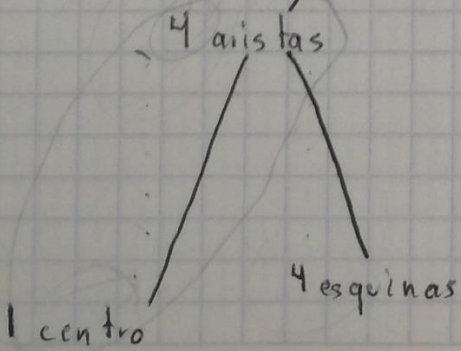 4 aristas
4 esquinas
1 centro